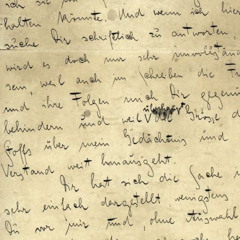 ich sie im
halten könnte. Und wenn ich hier
suche Dir schriftlich zu antworten,
wird es doch nur sehr unvollstän
sein, weil auch im Schreiben die Fu
und ihre Folgen mich Dir gegenü
behindern und weil über Grösse d
Stoffs über mein Gedächtnis und
Verstand weit hinausgeht.
Dir hat sich die Sache i
sehr einfach dargestellt, wenigstens
Du vor mir und, ohne Auswahl